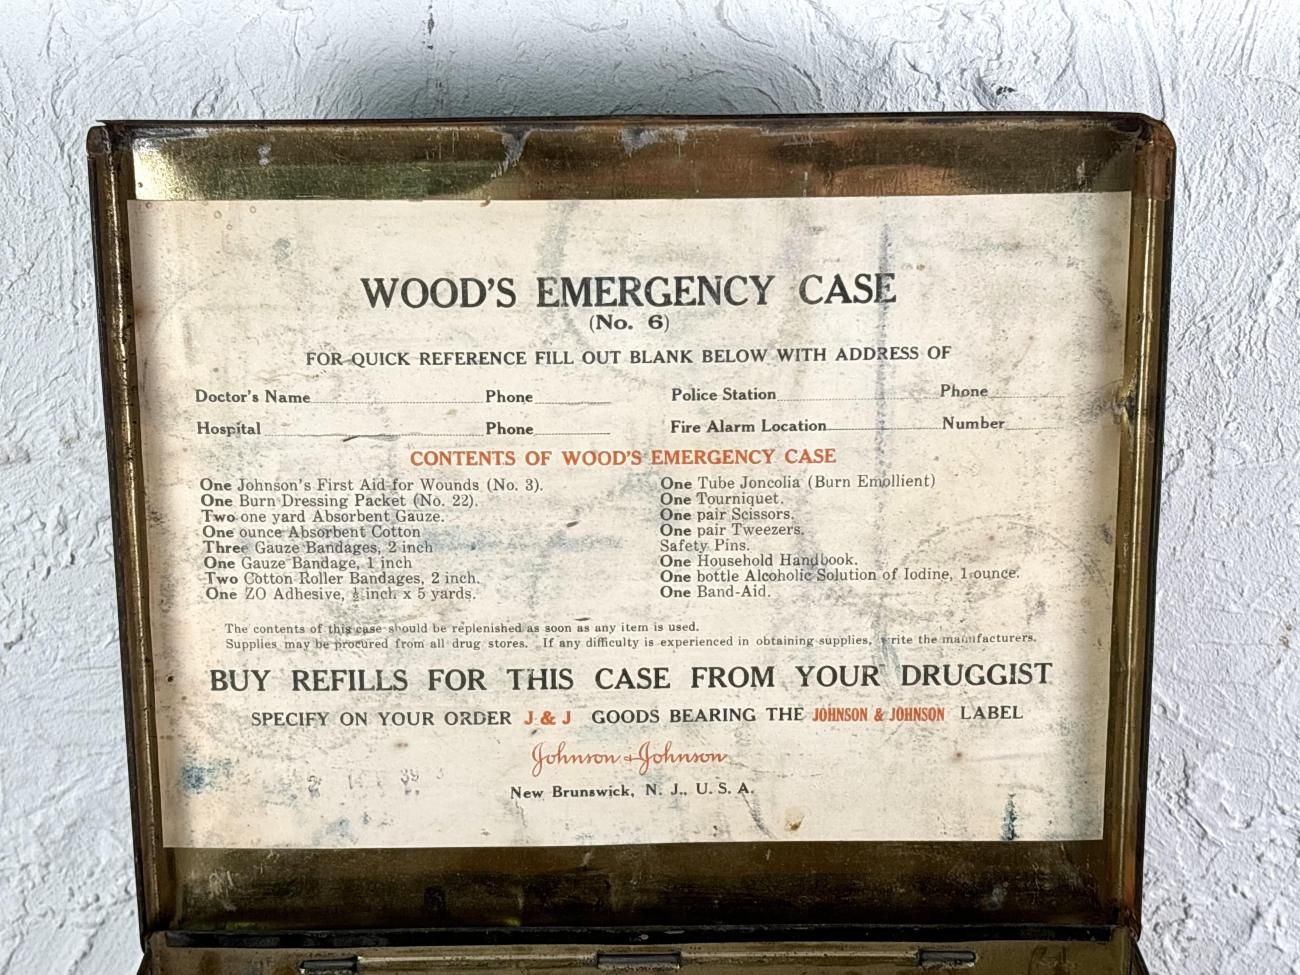 WOOD'S EMERGENCY CASE
(No. 6)
FOR QUICK REFERENCE FILL OUT BLANK BELOW WITH ADDRESS OF
Doctor's Name Phone Police Station Phone
Hospital Phone Fire Alarm Location Number
CONTENTS OF WOOD'S EMERGENCY CASE
One Johnson's First Aid for Wounds (No. 3).
One Burn Dressing Packet (No. 22).
Two one yard Absorbent Gauze.
One ounce Absorbent Cotton
Three Gauze Bandages, 2 inch
One Gauze Bandage, 1 inch
Two Cotton Roller Bandages, 2 inch.
One ZO Adhesive, ½ inch x 5 yards.
One Tube Joncolia (Burn Emollient)
One Tourniquet.
One pair Scissors.
One pair Tweezers.
Safety Pins.
One Household Handbook.
One bottle Alcoholic Solution of Iodine, 1 ounce.
One Band-Aid.
The contents of this case should be replenished as soon as any item is used.
Supplies may be procured from all drug stores. If any difficulty is experienced in obtaining supplies, write the manufacturers.
BUY REFILLS FOR THIS CASE FROM YOUR DRUGGIST
SPECIFY ON YOUR ORDER J & J GOODS BEARING THE JOHNSON & JOHNSON LABEL
Johnson & Johnson
New Brunswick, N. J., U. S. A.